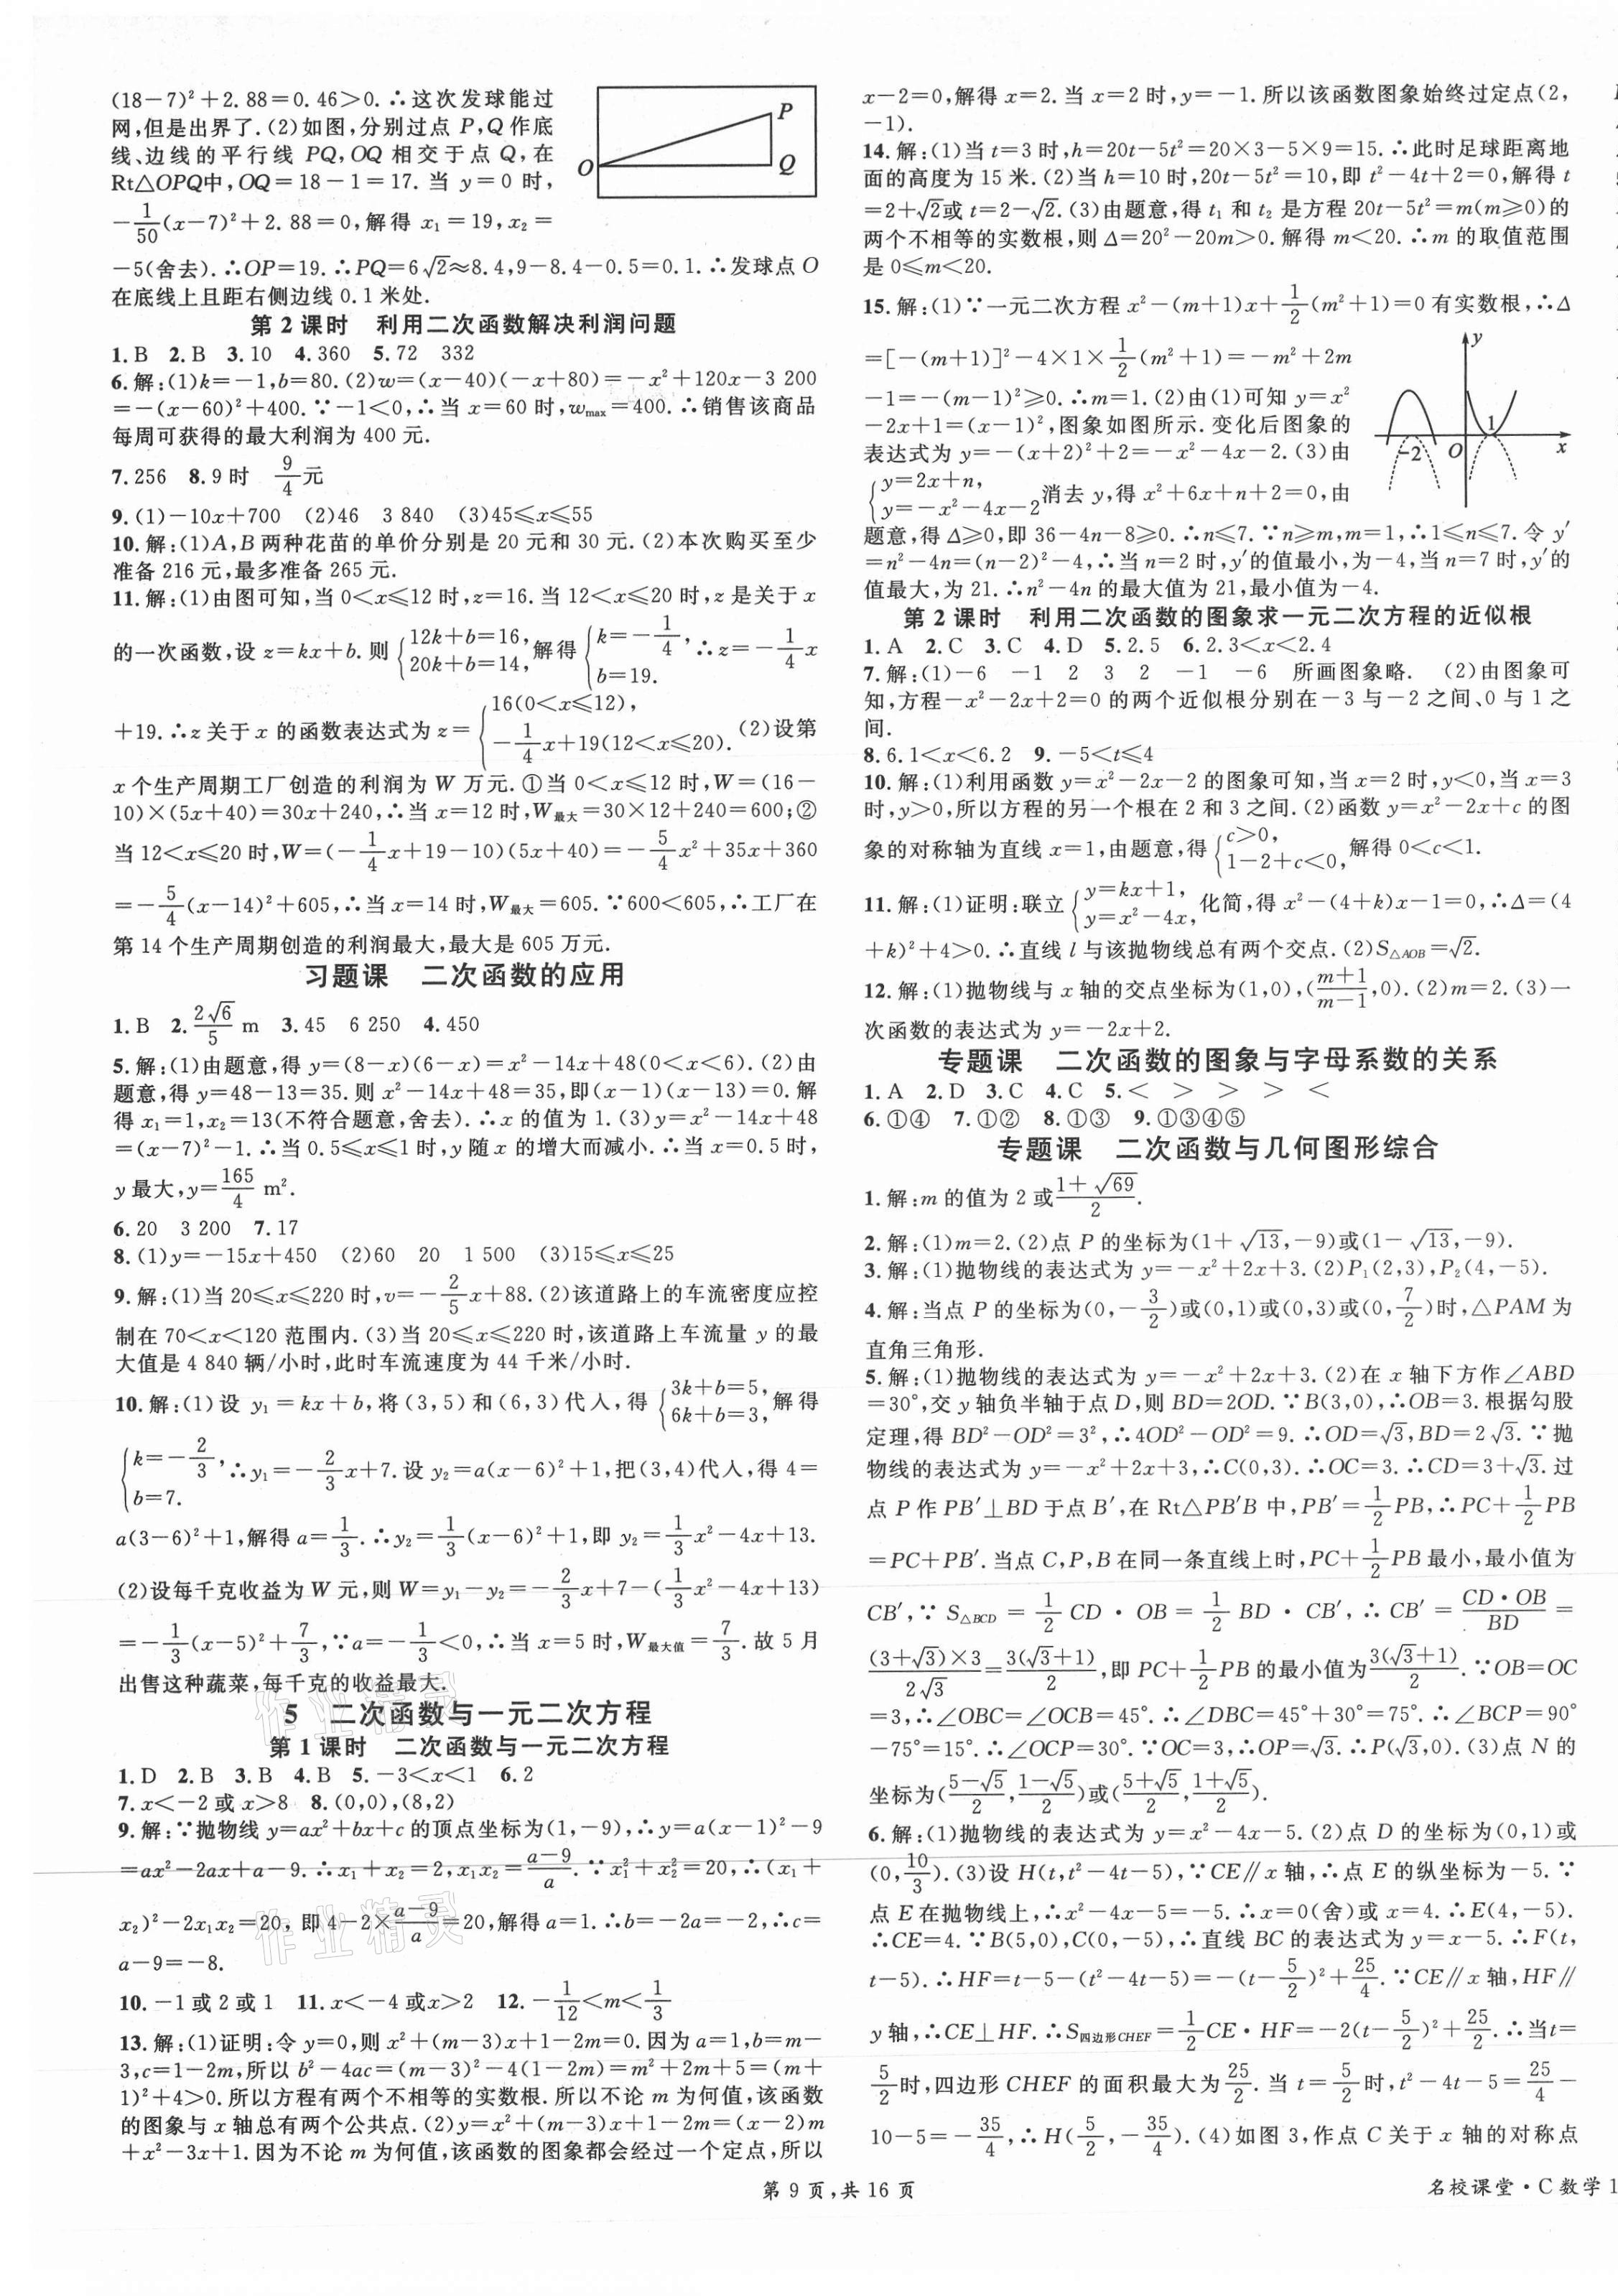 (18－7)²＋2.88＝0.46＞0.∴这次发球能过
网,但是出界了.(2)如图,分别过点 P,Q 作底
线、边线的平行线 PQ,OQ 相交于点 Q,在
Rt△OPQ中,OQ＝18－1＝17.当 y＝0 时,
－1/50(x－7)²＋2.88＝0,解得 x₁＝19,x₂＝
－5(舍去).∴OP＝19.∴PQ＝6√2≈8.4,9－8.4－0.5＝0.1.∴发球点 O
在底线上且距右侧边线 0.1 米处.
O P Q
第 2 课时　利用二次函数解决利润问题
1.B　2.B　3.10　4.360　5.72　332
6.解:(1)k＝－1,b＝80.(2)w＝(x－40)(－x＋80)＝－x²＋120x－3 200
＝－(x－60)²＋400.∵－1＜0,∴当 x＝60 时,wmax＝400.∴销售该商品
每周可获得的最大利润为 400 元.
7.256　8.9时　9/4元
9.(1)－10x＋700　(2)46　3 840　(3)45≤x≤55
10.解:(1)A,B 两种花苗的单价分别是 20 元和 30 元.(2)本次购买至少
准备 216 元,最多准备 265 元.
11.解:(1)由图可知,当 0＜x≤12 时,z＝16.当 12＜x≤20 时,z 是关于 x
的一次函数,设 z＝kx＋b.则{12k＋b＝16, 20k＋b＝14,解得{k＝－1/4, b＝19.∴z＝－1/4x
＋19.∴z 关于 x 的函数表达式为 z＝{16(0＜x≤12), －1/4x＋19(12＜x≤20).(2)设第
x 个生产周期工厂创造的利润为 W 万元.①当 0＜x≤12 时,W＝(16－
10)×(5x＋40)＝30x＋240,∴当 x＝12 时,W最大＝30×12＋240＝600;②
当 12＜x≤20 时,W＝(－1/4x＋19－10)(5x＋40)＝－5/4x²＋35x＋360
＝－5/4(x－14)²＋605,∴当 x＝14 时,W最大＝605.∵600＜605,∴工厂在
第 14 个生产周期创造的利润最大,最大是 605 万元.
习题课　二次函数的应用
1.B　2.2√6/5 m　3.45　6 250　4.450
5.解:(1)由题意,得 y＝(8－x)(6－x)＝x²－14x＋48(0＜x＜6).(2)由
题意,得 y＝48－13＝35.则 x²－14x＋48＝35,即(x－1)(x－13)＝0.解
得 x₁＝1,x₂＝13(不符合题意,舍去).∴x 的值为 1.(3)y＝x²－14x＋48
＝(x－7)²－1.∴当 0.5≤x≤1 时,y 随 x 的增大而减小.∴当 x＝0.5 时,
y 最大,y＝165/4 m².
6.20　3 200　7.17
8.(1)y＝－15x＋450　(2)60　20　1 500　(3)15≤x≤25
9.解:(1)当 20≤x≤220 时,v＝－2/5x＋88.(2)该道路上的车流密度应控
制在 70＜x＜120 范围内.(3)当 20≤x≤220 时,该道路上车流量 y 的最
大值是 4 840 辆/小时,此时车流速度为 44 千米/小时.
10.解:(1)设 y₁＝kx＋b,将(3,5)和(6,3)代入,得{3k＋b＝5, 6k＋b＝3,解得
{k＝－2/3, b＝7.∴y₁＝－2/3x＋7.设 y₂＝a(x－6)²＋1,把(3,4)代入,得 4＝
a(3－6)²＋1,解得 a＝1/3.∴y₂＝1/3(x－6)²＋1,即 y₂＝1/3x²－4x＋13.
(2)设每千克收益为 W 元,则 W＝y₁－y₂＝－2/3x＋7－(1/3x²－4x＋13)
＝－1/3(x－5)²＋7/3,∵a＝－1/3＜0,∴当 x＝5 时,W最大值＝7/3.故 5 月
出售这种蔬菜,每千克的收益最大.
5　二次函数与一元二次方程
第 1 课时　二次函数与一元二次方程
1.D　2.B　3.B　4.B　5.－3＜x＜1　6.2
7.x＜－2 或 x＞8　8.(0,0),(8,2)
9.解:∵抛物线 y＝ax²＋bx＋c 的顶点坐标为(1,－9),∴y＝a(x－1)²－9
＝ax²－2ax＋a－9.∴x₁＋x₂＝2,x₁x₂＝(a－9)/a.∵x₁²＋x₂²＝20,∴(x₁＋
x₂)²－2x₁x₂＝20,即 4－2×(a－9)/a＝20,解得 a＝1.∴b＝－2a＝－2,∴c＝
a－9＝－8.
10.－1 或 2 或 1　11.x＜－4 或x＞2　12.－1/12＜m＜1/3
13.解:(1)证明:令 y＝0,则 x²＋(m－3)x＋1－2m＝0.因为 a＝1,b＝m－
3,c＝1－2m,所以 b²－4ac＝(m－3)²－4(1－2m)＝m²＋2m＋5＝(m＋
1)²＋4＞0.所以方程有两个不相等的实数根.所以不论 m 为何值,该函数
的图象与 x 轴总有两个公共点.(2)y＝x²＋(m－3)x＋1－2m＝(x－2)m
＋x²－3x＋1.因为不论 m 为何值,该函数的图象都会经过一个定点,所以
x－2＝0,解得 x＝2.当 x＝2 时,y＝－1.所以该函数图象始终过定点(2,
－1).
14.解:(1)当 t＝3 时,h＝20t－5t²＝20×3－5×9＝15.∴此时足球距离地
面的高度为 15 米.(2)当 h＝10 时,20t－5t²＝10,即 t²－4t＋2＝0,解得 t
＝2＋√2或 t＝2－√2.(3)由题意,得 t₁ 和 t₂ 是方程 20t－5t²＝m(m≥0)的
两个不相等的实数根,则 Δ＝20²－20m＞0.解得 m＜20.∴m 的取值范围
是 0≤m＜20.
15.解:(1)∵一元二次方程 x²－(m＋1)x＋1/2(m²＋1)＝0 有实数根,∴Δ
＝[－(m＋1)]²－4×1×1/2(m²＋1)＝－m²＋2m
－1＝－(m－1)²≥0.∴m＝1.(2)由(1)可知 y＝x²
－2x＋1＝(x－1)²,图象如图所示.变化后图象的
表达式为 y＝－(x＋2)²＋2＝－x²－4x－2.(3)由
{y＝2x＋n, y＝－x²－4x－2消去 y,得 x²＋6x＋n＋2＝0,由
y －2 O 1 x
题意,得 Δ≥0,即 36－4n－8≥0.∴n≤7.∵n≥m,m＝1,∴1≤n≤7.令 y′
＝n²－4n＝(n－2)²－4,∴当 n＝2 时,y′的值最小,为－4,当 n＝7 时,y′的
值最大,为 21.∴n²－4n 的最大值为 21,最小值为－4.
第 2 课时　利用二次函数的图象求一元二次方程的近似根
1.A　2.C　3.C　4.D　5.2.5　6.2.3＜x＜2.4
7.解:(1)－6　－1　2　3　2　－1　－6　所画图象略.　(2)由图象可
知,方程－x²－2x＋2＝0 的两个近似根分别在－3 与－2 之间、0 与 1 之
间.
8.6.1＜x＜6.2　9.－5＜t≤4
10.解:(1)利用函数 y＝x²－2x－2 的图象可知,当 x＝2 时,y＜0,当 x＝3
时,y＞0,所以方程的另一个根在 2 和 3 之间.(2)函数 y＝x²－2x＋c 的图
象的对称轴为直线 x＝1,由题意,得{c＞0, 1－2＋c＜0,解得 0＜c＜1.
11.解:(1)证明:联立{y＝kx＋1, y＝x²－4x,化简,得 x²－(4＋k)x－1＝0,∴Δ＝(4
＋k)²＋4＞0.∴直线 l 与该抛物线总有两个交点.(2)S△AOB＝√2.
12.解:(1)抛物线与 x 轴的交点坐标为(1,0),((m＋1)/(m－1),0).(2)m＝2.(3)一
次函数的表达式为 y＝－2x＋2.
专题课　二次函数的图象与字母系数的关系
1.A　2.D　3.C　4.C　5.＜　＞　＞　＞　＜
6.①④　7.①②　8.①③　9.①③④⑤
专题课　二次函数与几何图形综合
1.解:m 的值为 2 或(1＋√69)/2.
2.解:(1)m＝2.(2)点 P 的坐标为(1＋√13,－9)或(1－√13,－9).
3.解:(1)抛物线的表达式为 y＝－x²＋2x＋3.(2)P₁(2,3),P₂(4,－5).
4.解:当点 P 的坐标为(0,－3/2)或(0,1)或(0,3)或(0,7/2)时,△PAM 为
直角三角形.
5.解:(1)抛物线的表达式为 y＝－x²＋2x＋3.(2)在 x 轴下方作∠ABD
＝30°,交 y 轴负半轴于点 D,则 BD＝2OD.∵B(3,0),∴OB＝3.根据勾股
定理,得 BD²－OD²＝3²,∴4OD²－OD²＝9.∴OD＝√3,BD＝2√3.∵抛
物线的表达式为 y＝－x²＋2x＋3,∴C(0,3).∴OC＝3.∴CD＝3＋√3.过
点 P 作 PB′⊥BD 于点 B′,在 Rt△PB′B 中,PB′＝1/2PB,∴PC＋1/2PB
＝PC＋PB′.当点 C,P,B 在同一条直线上时,PC＋1/2PB 最小,最小值为
CB′,∵S△BCD＝1/2CD·OB＝1/2BD·CB′,∴CB′＝CD·OB/BD＝
(3＋√3)×3/2√3＝3(√3＋1)/2,即 PC＋1/2PB 的最小值为3(√3＋1)/2.∵OB＝OC
＝3,∴∠OBC＝∠OCB＝45°.∴∠DBC＝45°＋30°＝75°.∴∠BCP＝90°
－75°＝15°.∴∠OCP＝30°.∵OC＝3,∴OP＝√3.∴P(√3,0).(3)点 N 的
坐标为((5－√5)/2,(1－√5)/2)或((5＋√5)/2,(1＋√5)/2).
6.解:(1)抛物线的表达式为 y＝x²－4x－5.(2)点 D 的坐标为(0,1)或
(0,10/3).(3)设 H(t,t²－4t－5),∵CE∥x 轴,∴点 E 的纵坐标为－5.∵
点 E 在抛物线上,∴x²－4x－5＝－5.∴x＝0(舍)或 x＝4.∴E(4,－5).
∴CE＝4.∵B(5,0),C(0,－5),∴直线 BC 的表达式为 y＝x－5.∴F(t,
t－5).∴HF＝t－5－(t²－4t－5)＝－(t－5/2)²＋25/4.∵CE∥x 轴,HF∥
y 轴,∴CE⊥HF.∴S四边形CHEF＝1/2CE·HF＝－2(t－5/2)²＋25/2.∴当 t＝
5/2时,四边形 CHEF 的面积最大为25/2.当 t＝5/2时,t²－4t－5＝25/4－
10－5＝－35/4,∴H(5/2,－35/4).(4)如图 3,作点 C 关于 x 轴的对称点
作业精灵
作业精灵
第 9 页,共 16 页
名校课堂·C 数学 1